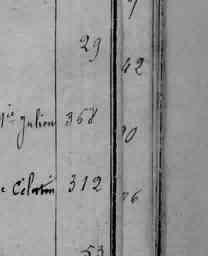 29
42
Julien 368
70
Célestin 312
76
53